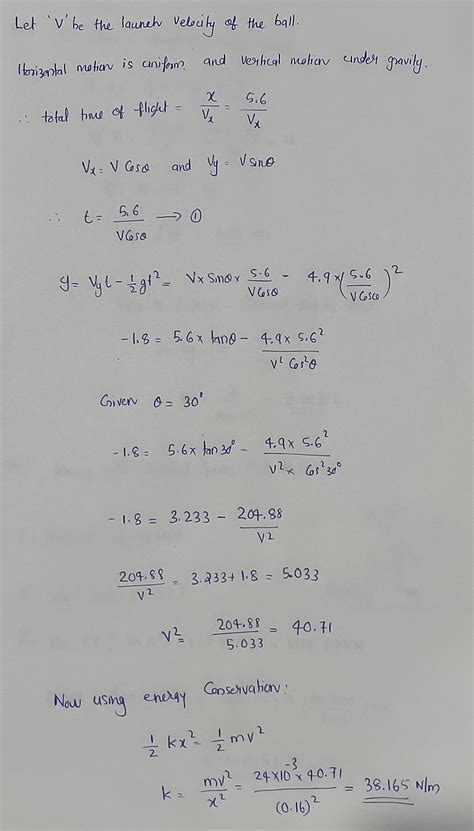 Let 'V' be the launch velocity of the ball.
Horizontal motion is uniform and vertical motion under gravity.
∴ total time of flight = x/Vₓ = 5.6/Vₓ
Vₓ = V Cosθ and Vy = V sinθ
∴ t = 5.6/VCosθ → ①
y = Vyt - ½gt² = V x Sinθ x 5.6/VCosθ - 4.9 x (5.6/VCosθ)²
-1.8 = 5.6 x tanθ - 4.9 x 5.6²/V² Cos²θ
Given θ = 30°
-1.8 = 5.6 x tan 30° - 4.9 x 5.6²/V² x Cos²30°
-1.8 = 3.233 - 204.88/V²
204.88/V² = 3.233 + 1.8 = 5.033
V² = 204.88/5.033 = 40.71
Now using energy Conservation:
½ kx² = ½ mv²
k = mv²/x² = 24x10⁻³ x 40.71/(0.16)² = 38.165 N/m